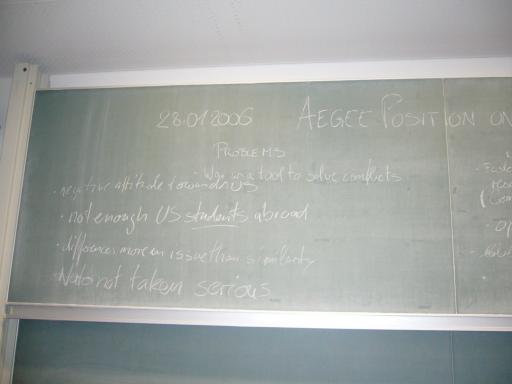 28.01.2006 AEGEE POSITION ON
PROBLEMS
· War as a tool to solve conflicts
· negative attitude towards US
· not enough US students abroad
· differences more an issue than similarity
· Nato not taken serious